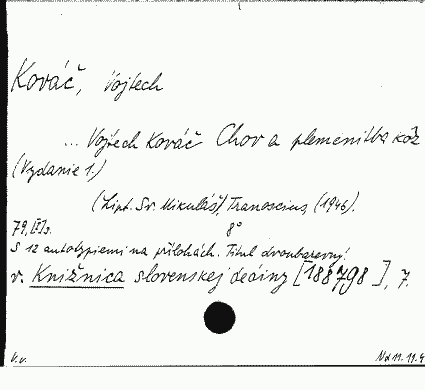 Kováč, Vojtech
... Vojtech Kováč Chov a plemenitba kôz
(Vydanie 1.)
(Lipt. Sv. Mikuláš), Tranoscius, (1946).
79, [I] s. 8°
S 12 autotypiemi na přílohách. Titul dvoubarevný.
v. Knižnica slovenskej dediny [188798], 7.
V.v. Nd 11.11.4